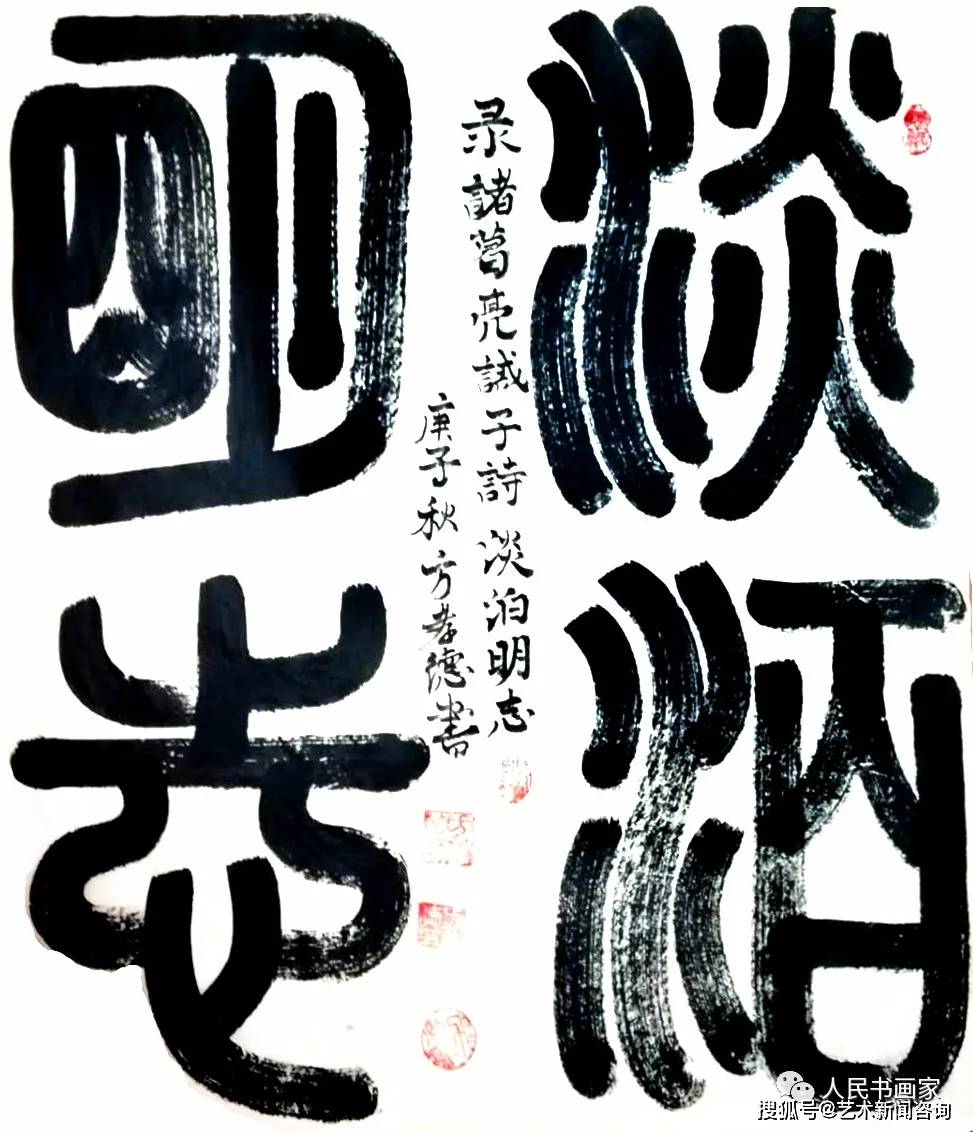 淡泊
明志
录諸葛亮誡子詩 淡泊明志
庚子秋方孝德書
人民书画家
搜狐号@艺术新闻咨询